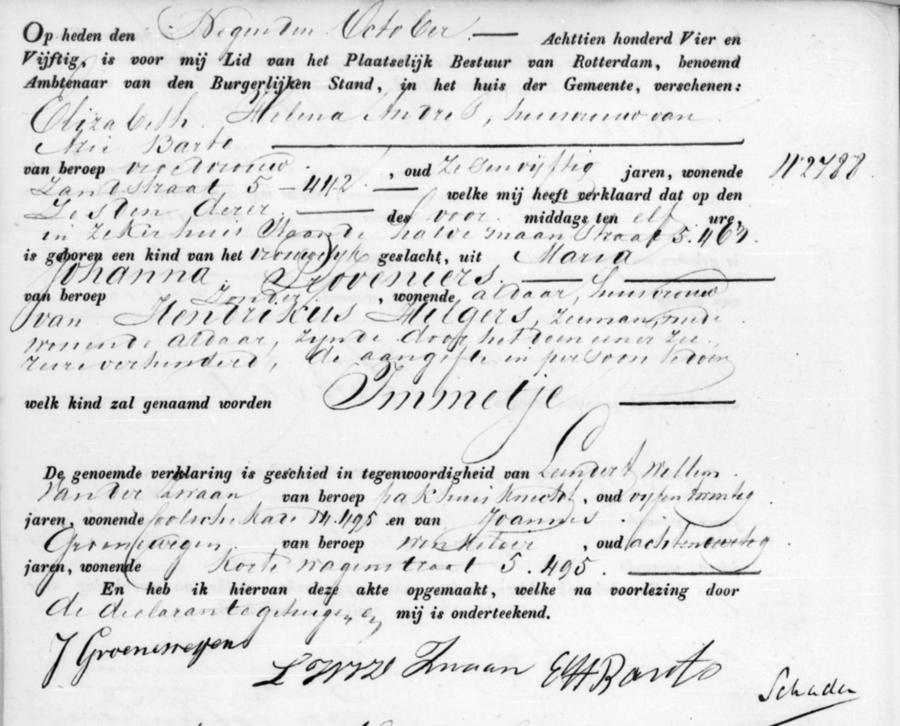 Op heden den Negenden October — Achttien honderd Vier en
Vijftig, is voor mij Lid van het Plaatselijk Bestuur van Rotterdam, benoemd
Ambtenaar van den Burgerlijken Stand, in het huis der Gemeente, verschenen:
Elizabeth Helena André, huisvrouw van
Arie Barto
van beroep vroedvrouw, oud zesenvijftig jaren, wonende
Zandstraat 5-442 — welke mij heeft verklaard dat op den
Zesden dezer — des voor middags ten elf ure,
in zeker huis staande halve maan straat 5.463
is geboren een kind van het vrouwelijk geslacht, uit Maria
Johanna Proveniers
van beroep zonder, wonende aldaar, huisvrouw
van Hendrikus Hilgers, zeeman, mede
wonende aldaar, zijnde door het doen eener zee
reize verhinderd, de aangifte in persoon te doen
welk kind zal genaamd worden Immetje —
De genoemde verklaring is geschied in tegenwoordigheid van Leendert Willem
van der Zwaan van beroep pakhuisknecht, oud vijfentwintig
jaren, wonende 14.495 en van Joannes
Groenewegen van beroep winkelier, oud achtenveertig
jaren, wonende Korte wagenstraat 5.495.
En heb ik hiervan deze akte opgemaakt, welke na voorlezing door
de declarante getuigen en mij is onderteekend.
N 2788
J Groenewegen
Zwaan
EH Barto
Schadee